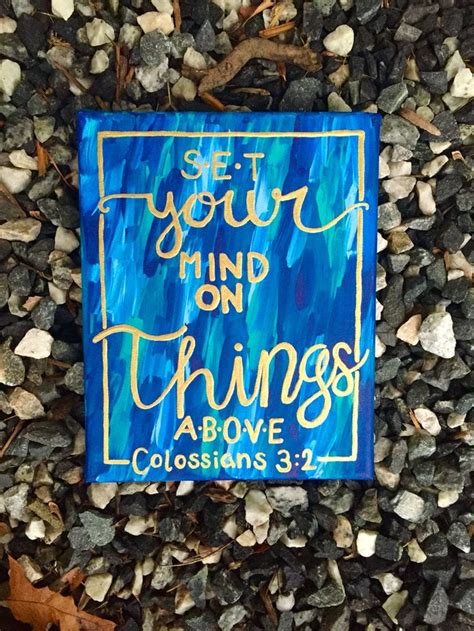 S·E·T
your
MIND
ON
Things
A·B·O·V·E
Colossians 3:2